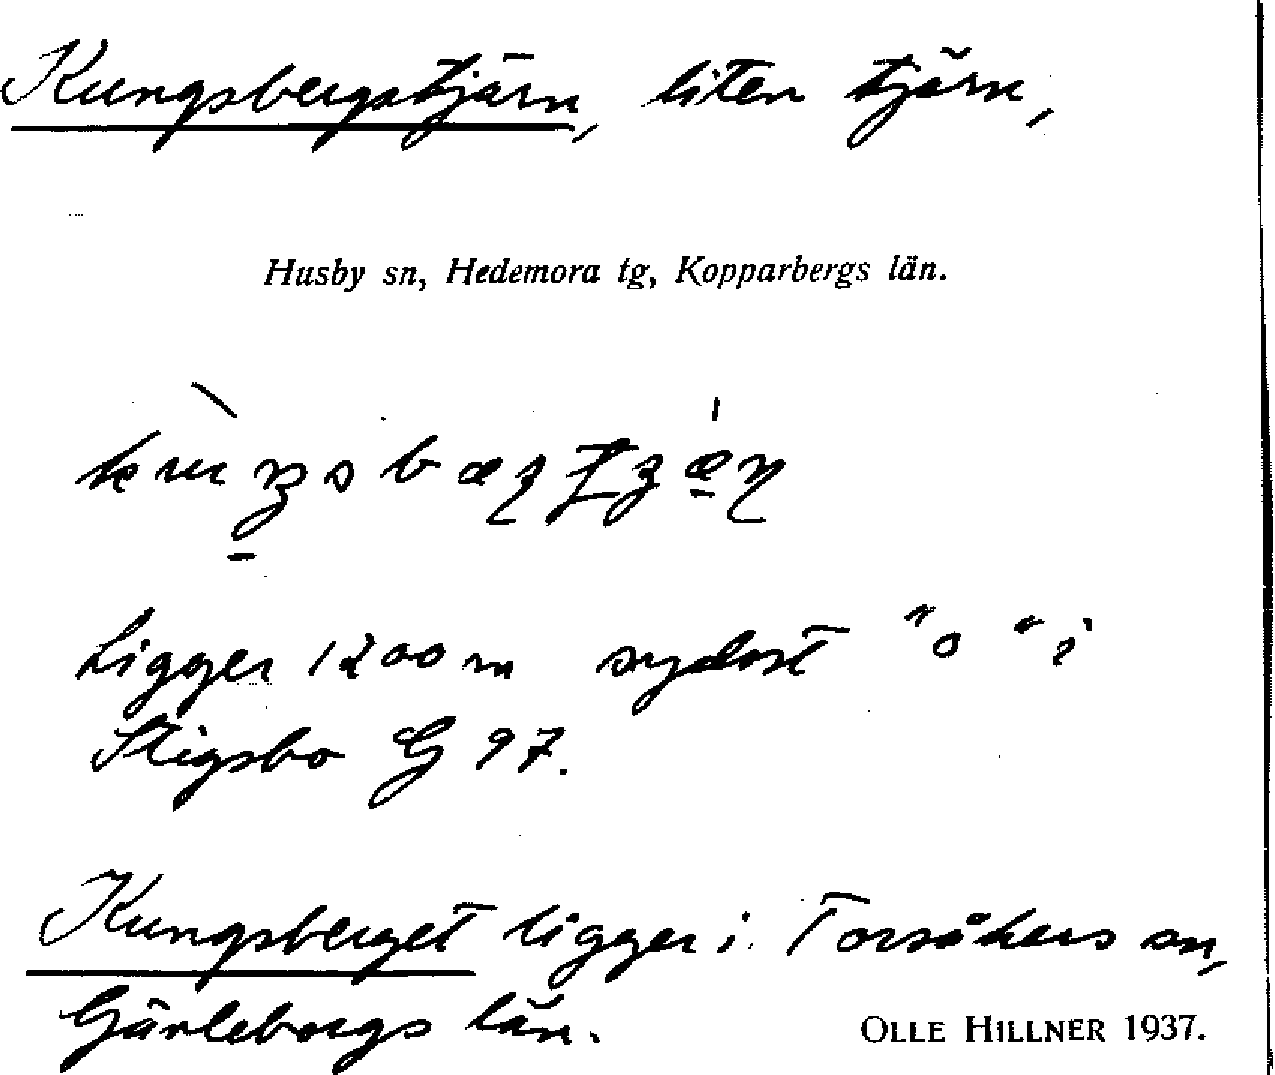 Kungsbergstjärn, liten tjärn,
Husby sn, Hedemora tg, Kopparbergs län.
Ligger 1200 m sydost "o" i
Stigsbo G 97.
Kungsberget ligger i Torsåkers sn,
Gävleborgs län.
OLLE HILLNER 1937.